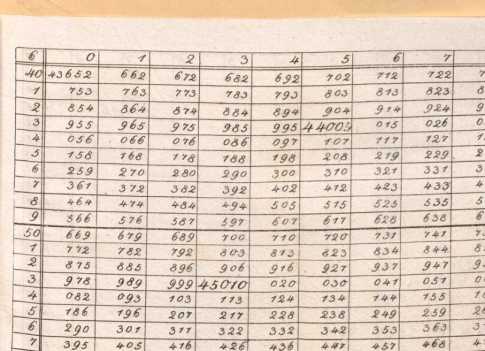 6 0 1 2 3 4 5 6 7
40 43652 662 672 682 692 702 712 722
1 753 763 773 783 793 803 813 823
2 854 864 874 884 894 904 914 924
3 955 965 975 985 995 44005 015 026
4 056 066 076 086 097 107 117 127
5 158 168 178 188 198 208 219 229
6 259 270 280 290 300 310 321 331
7 361 372 382 392 402 412 423 433
8 464 474 484 494 505 515 525 535
9 566 576 587 597 607 617 628 638
50 669 679 689 700 710 720 731 741
1 772 782 792 803 813 823 834 844
2 875 885 896 906 916 927 937 947
3 978 989 999 45010 020 030 041 051
4 082 093 103 113 124 134 144 155
5 186 196 207 217 228 238 249 259
6 290 301 311 322 332 342 353 363
7 395 405 416 426 436 447 457 468